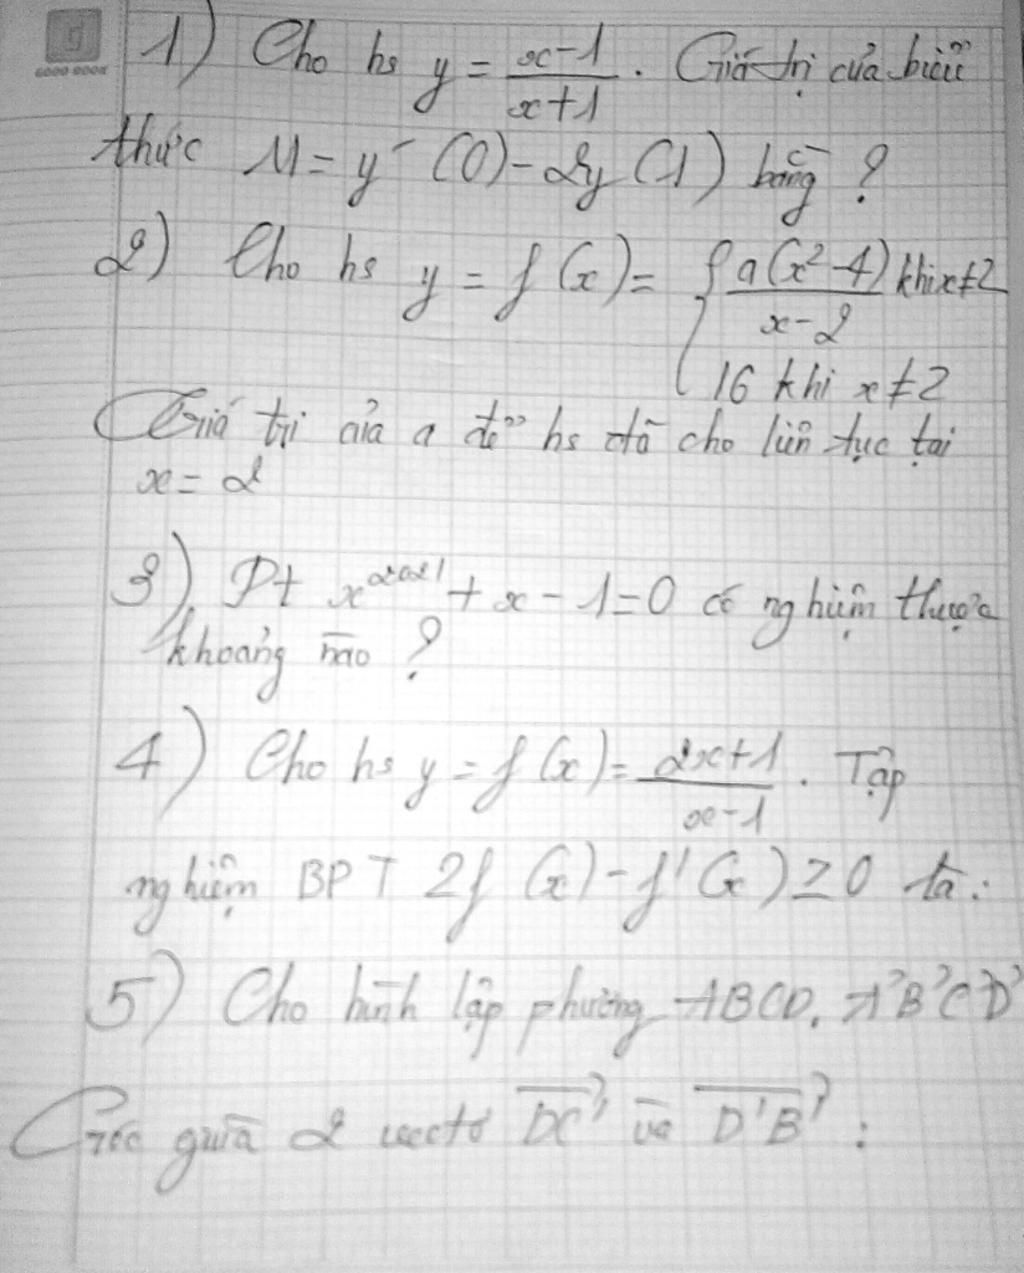 GOOD BOOK
1) Cho hs y = \frac{x-1}{x+1}. Giá trị của biểu
thức M = y' (0) - 2y (1) bằng ?
2) Cho hs y = f(x) = { \frac{a(x²-4)}{x-2} khi x≠2
16 khi x≠2
Giá trị của a để hs đã cho liên tục tại
x = 2
3) Pt x^{2021} + x - 1 = 0 có nghiệm thuộc
khoảng nào ?
4) Cho hs y = f(x) = \frac{2x+1}{x-1}. Tập
nghiệm BPT 2f(x) - f'(x) ≥ 0 là:
5) Cho hình lập phương ABCD. A'B'C'D'
Góc giữa 2 vectơ \overline{DC'} và \overline{D'B'} :